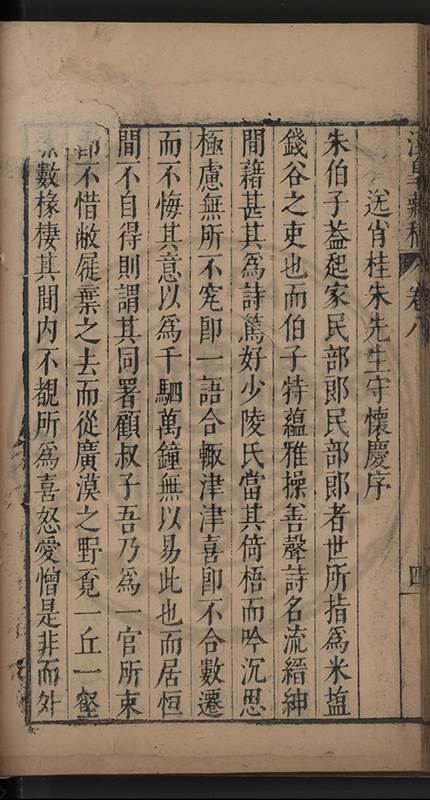 卷八
四
送肖桂朱先生守懷慶序
朱伯子葢起家民部郎民部郎者世所指為米鹽
錢谷之吏也而伯子特蘊雅操善聲詩名流縉紳
間藉甚其為詩篤好少陵氏當其倚梧而吟沉思
極慮無所不究卽一語合輙津津喜卽不合數遷
而不悔其意以為千駟萬鐘無以易此也而居恒
間不自得則謂其同署顧叔子吾乃為一官所束
部不惜敝屣棄之去而從廣漠之野覔一丘一壑
數椽棲其間內不覩所為喜怒愛憎是非而外